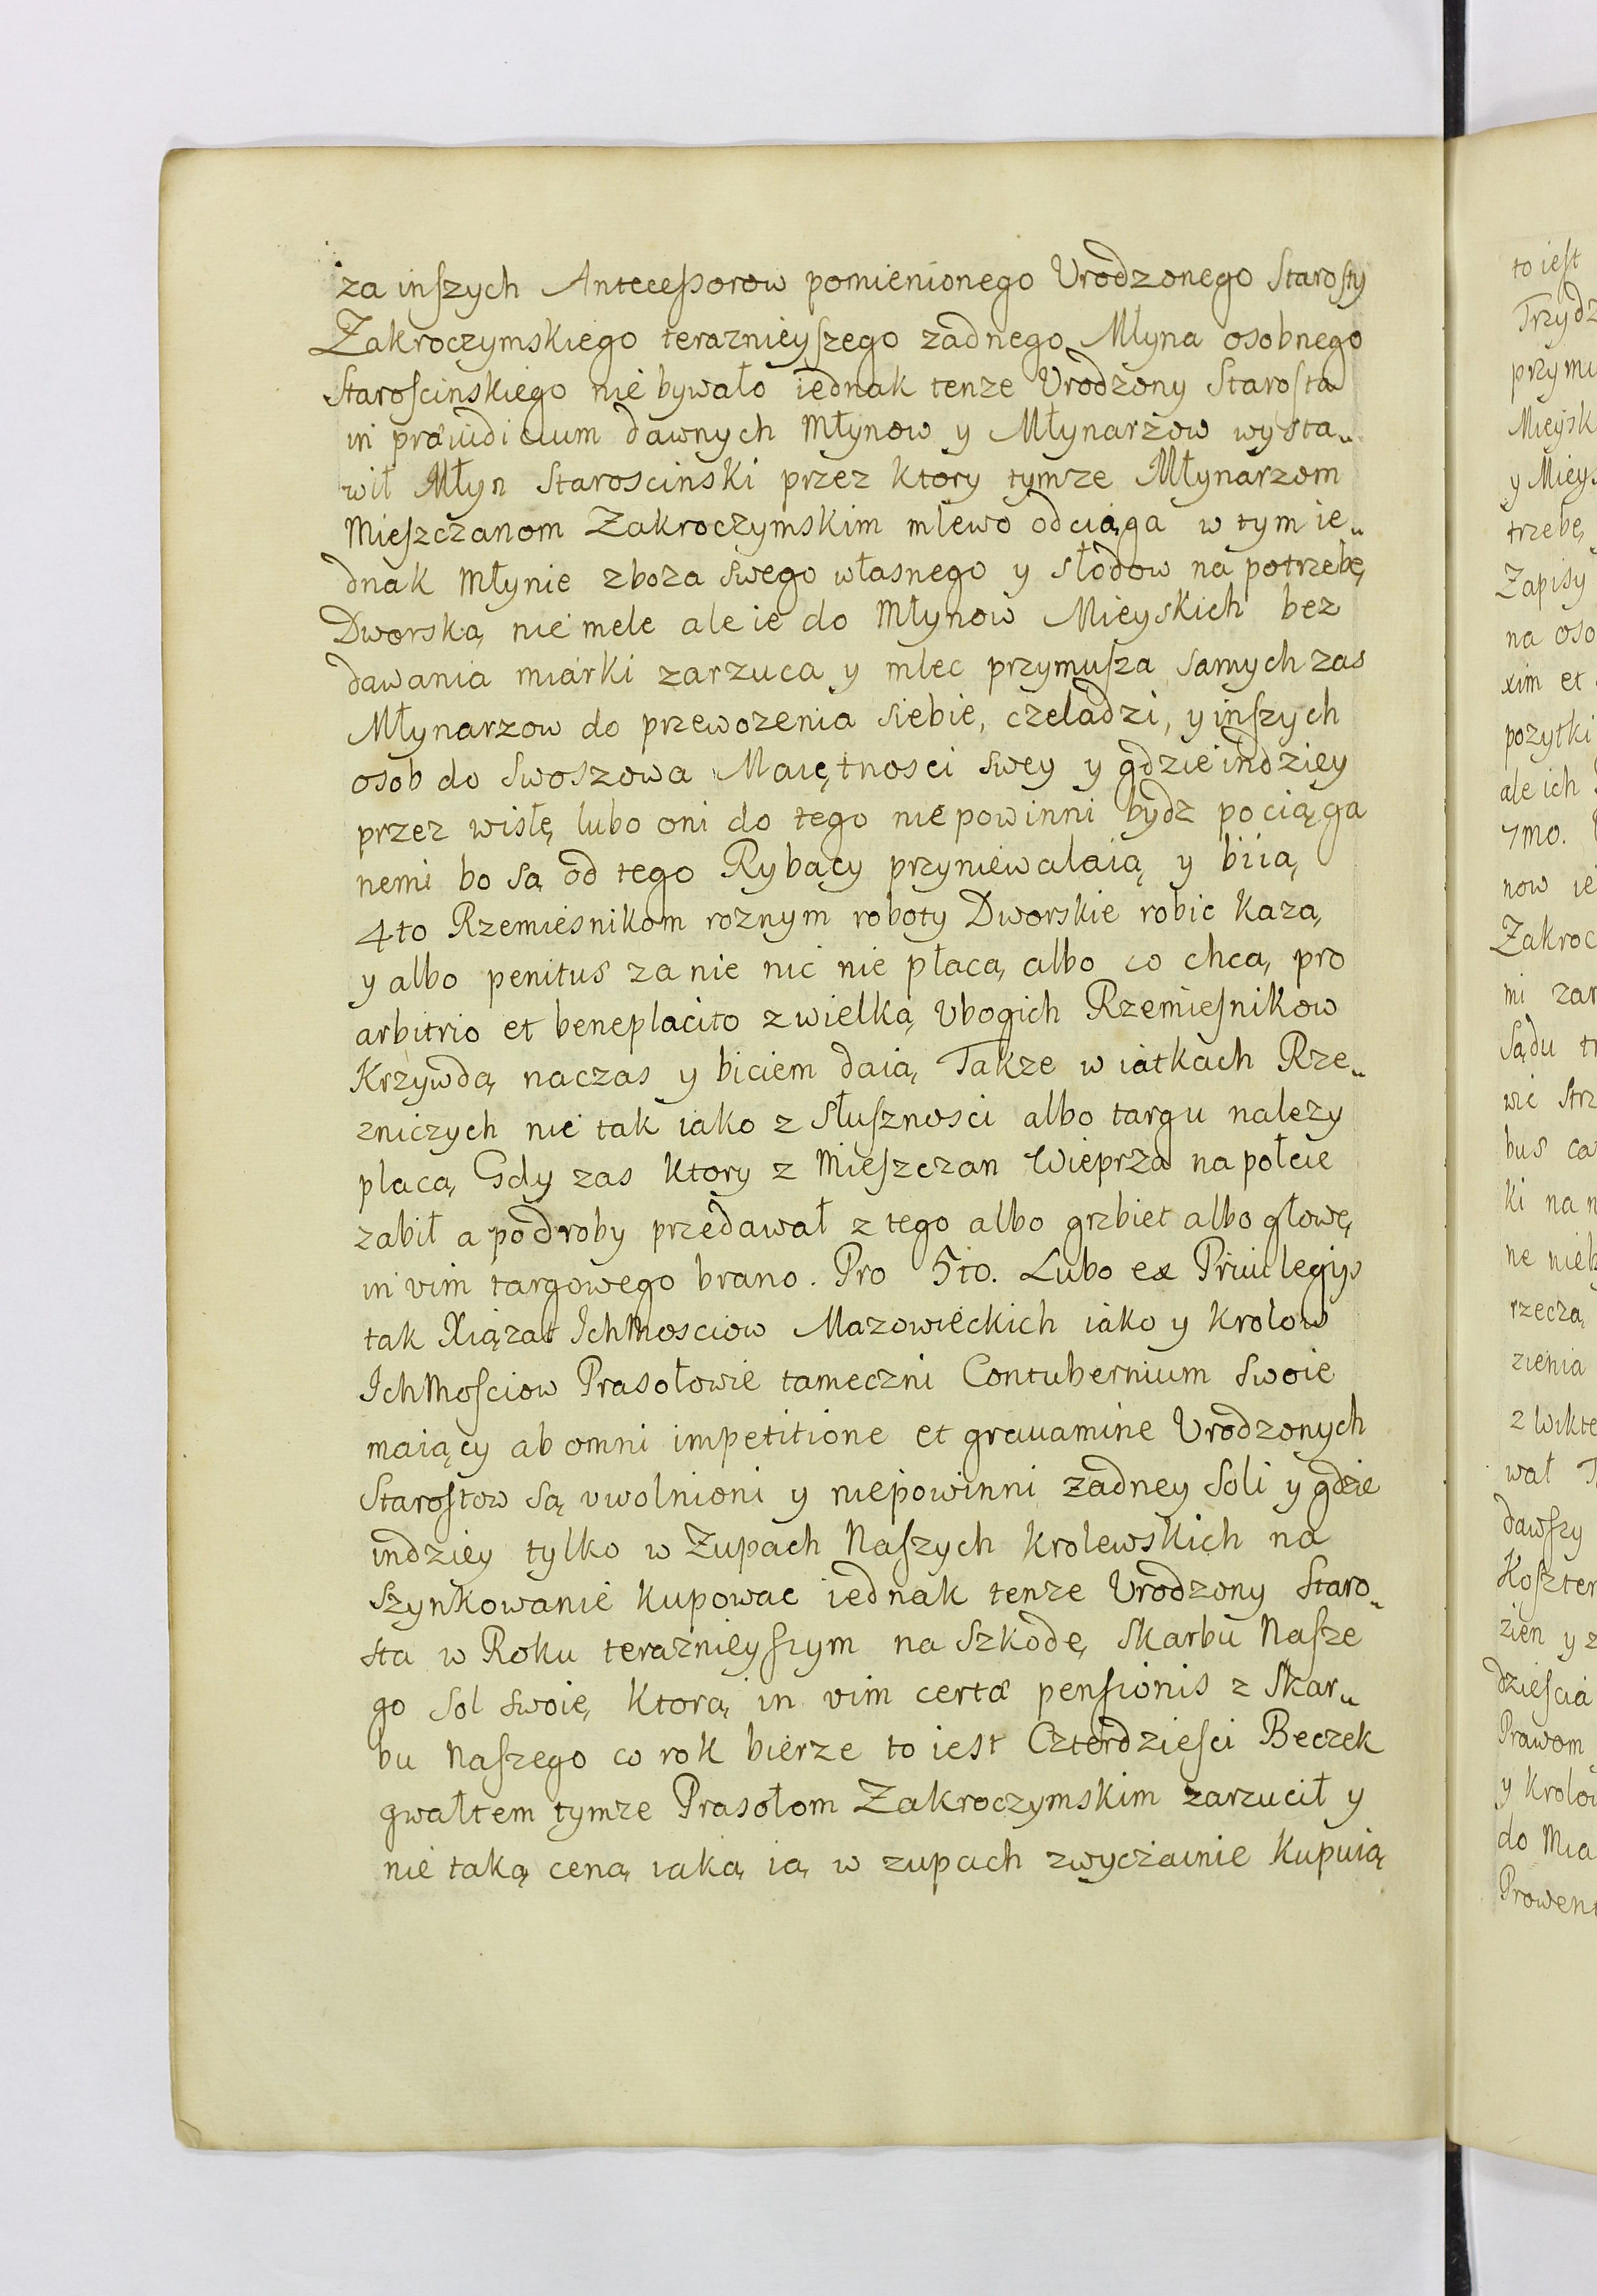 za inſzych Anteceſsorow pomienionego Vrodzonego Staroſty
Zakroczymskiego teraznieyſzego zadnego Młyna osobnego
Staroſcinskiego nie bywało iednak tenze Vrodzony Staroſta
in præiudicium dawnych Młynow y Młynarzow wysta„
wił Młyn Staroscinski przez ktory tymze Młynarzom
Mieſzczanom Zakroczymskim mlewo odciąga w tym ie„
dnak Młynie zboza swego własnego y słodow na potrzebę
Dworską nie mele ale ie do Młynow Mieyskich bez
dawania miarki zarzuca y mlec przymuſza samych zas
Młynarzow do przewozenia siebie, czeladzi, y inſzych
osob do Swoszowa Maiętnosci swey y gdzieindziey
przez wisłę lubo oni do tego nie powinni bydz pociąga
nemi bo są od tego Rybacy przyniewalaią y biią
4to Rzemiesnikom roznym roboty Dworskie robic kazą
y albo penitus za nie nic nie płacą albo co chcą pro
arbitrio et beneplacito z wielką Vbogich Rzemieſnikow
Krzywdą naczas y biciem daią Takze w iatkach Rze„
zniczych nie tak iako z słuſznosci albo targu nalezy
placą Gdy zas ktory z Mieſzczan Wieprza na połcie
zabił a podroby przedawał z tego albo grzbiet albo głowę
in vim targowego brano. Pro 5to. Lubo ex Priuilegijs
tak Xiązat IchMosciow Mazowieckich iako y Krolow
IchMoſciow Prasołowie tameczni Contubernium swoie
maiący ab omni impetitione et grauamine Vrodzonych
Staroſtow są vwolnioni y niepowinni zadney Soli y gdzie
indziey tylko w Zupach Naſzych Krolewskich na
szynkowanie kupowac iednak tenze Vrodzony Staro„
sta w Roku teraznieyſzym na szkodę Skarbu Naſze
go Sol swoię ktorą in vim certæ penſionis z Skar„
bu Naſzego co rok bierze to iest Czterdzieſci Beczek
gwałtem tymze Prasołom Zakroczymskim zarzucił y
nie taką ceną iaką ią w zupach zwyczainie kupuią
to ieſt
Trzydz
przymu
Mieysk
y Mieys
trzebę
Zapisy
na oso
xim et
pozytki
ale ich
7mo.
now ie
Zakroc
mi zar
Sądu tr
wic Strz
bus ca
ki na n
ne nieb
rzeczą
zienia
z Wikte
wał
dawſzy
Koſzter
zien y z
dzieſcia
Prawom
y Krolow
do Mia
Prowen